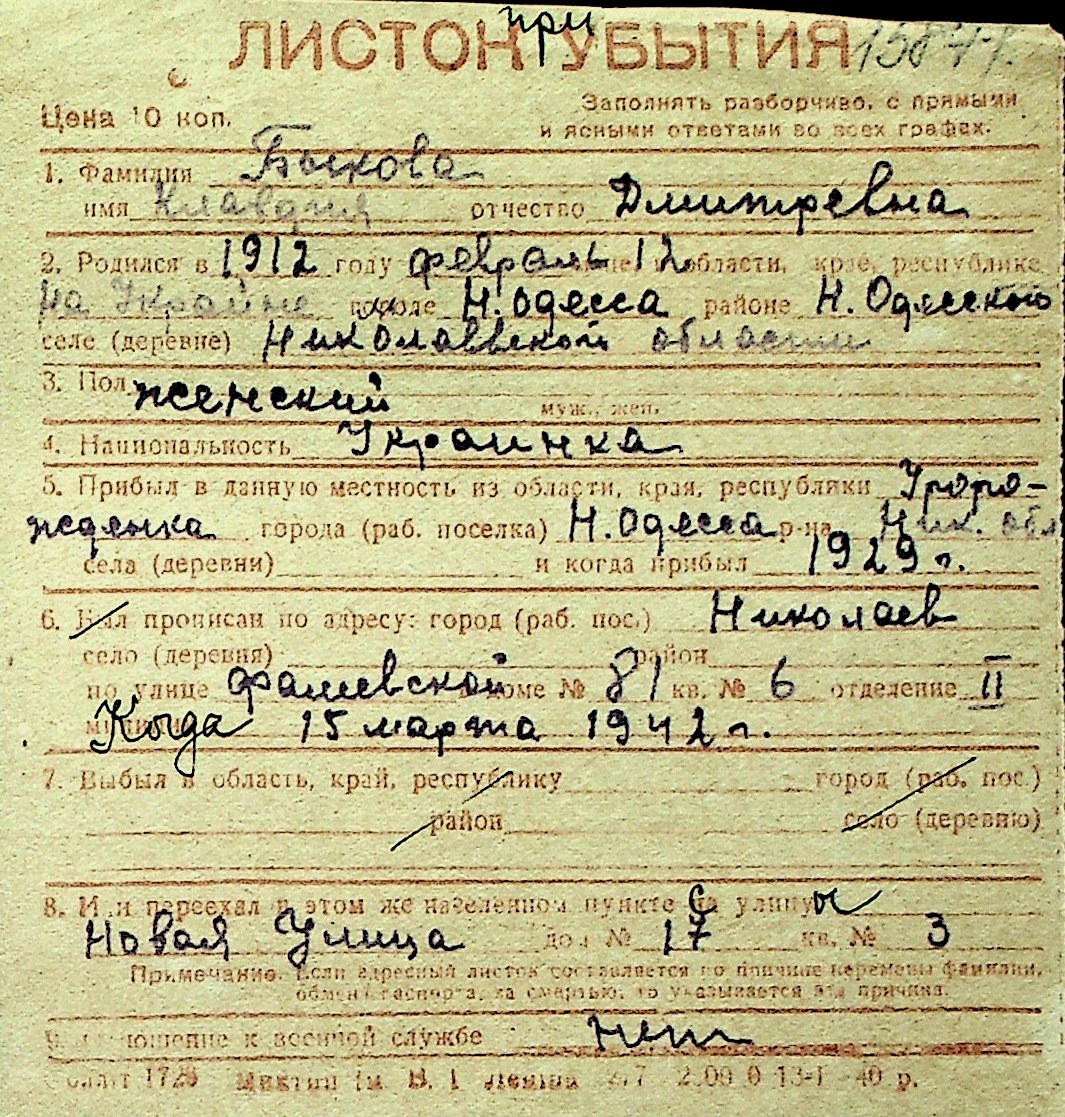 при
ЛИСТОК УБЫТИЯ
Цена 10 коп.
Заполнять разборчиво, с прямыми
и ясными ответами во всех графах.
1. Фамилия Быкова
имя Клавдия отчество Дмитревна
2. Родился в 1912 году февраль 12 области, крае, республике
На Украине городе Н. Одесса районе Н. Одесского
селе (деревне) Николаевской области
3. Пол женский
муж., жен.
4. Национальность Украинка
5. Прибыл в данную местность из области, края, республики Уроро-
жденка города (раб. поселка) Н. Одесса р-на Ник. обл
села (деревни) и когда прибыл 1929 г.
6. Был прописан по адресу: город (раб. пос.) Николаев
село (деревня) район
по улице Фалеевской доме № 81 кв. № 6 отделение II
Когда 15 марта 1942 г.
7. Выбыл в область, край, республику город (раб. пос.)
район село (деревню)
8. Или переехал в этом же населенном пункте с улицы
Новая Улица дом № 17 кв. № 3
Примечание. Если адресный листок составляется по причине перемены фамилии,
обмена паспорта, за смертью, то указывается эта причина.
9. Отношение к военной службе нет
1720 им. В. И. Ленина 40 р.